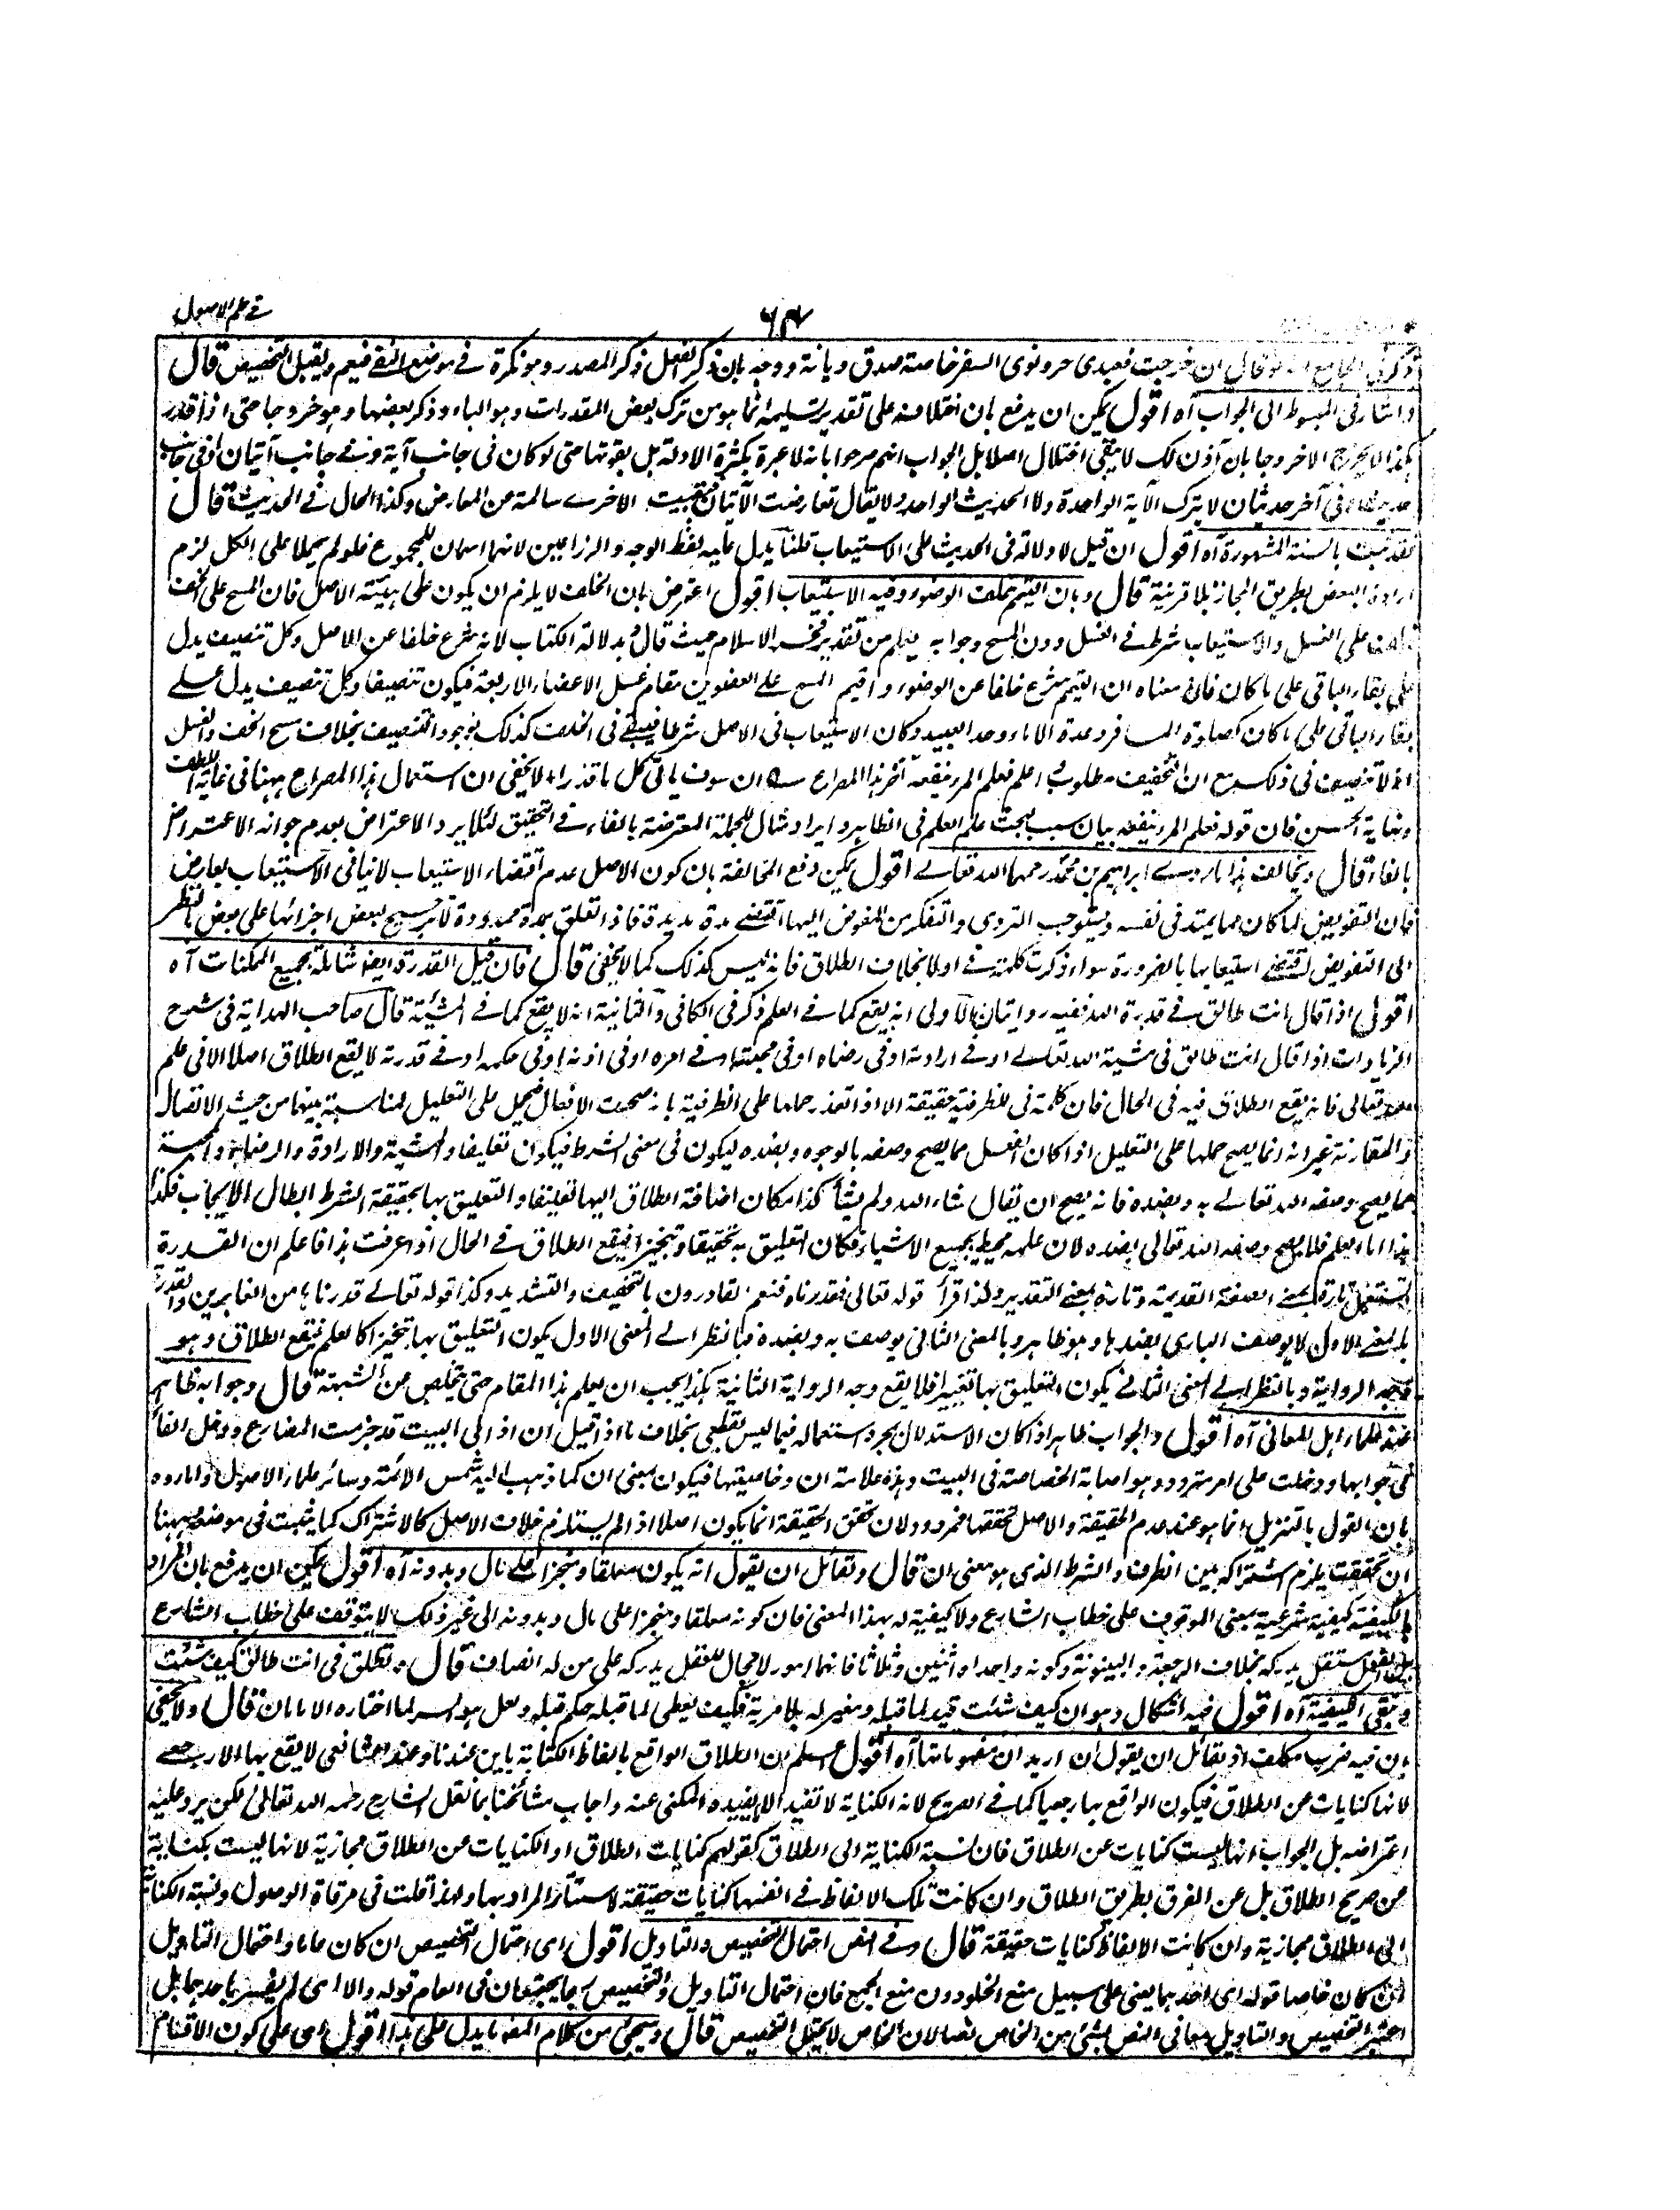 في علم الاصول
٦٤
ذكر في الجامع انه لو قال ان خرجت فعبدي حر ونوى السفر خاصة صدق ديانة ووجه بان ذكر الفعل ذكر للمصدر وهو نكرة في موضع النفي فيعم ويقبل التخصيص قال
واشار في المبسوط الى الجواب آه اقول يمكن ان يدفع بان اختلافه على تقدير تسليمه انما هو من ترك بعض المقدرات وهو الباء وذكر بعضها وهو خروجا حتى اذا قدر
هكذا لا تخرج الا خروجا بان آذن لك لا يبقى اختلال اصلا بل الجواب انهم صرحوا بانه لا عبرة بكثرة الادلة بل بقوتها حتى لو كان في جانب آية وفي جانب آيتان او في جانب
حديث وفي آخر حديثان لا يترك الآية الواحدة ولا الحديث الواحد ولا يقال تعارضت الآيتان فبقيت الاخرى سالمة من المعارض وكذا الحال في الحديث قال
فقد ثبت بالسنة المشهورة آه اقول ان قيل لا دلالة في الحديث على الاستيعاب قلنا يدل عليه لفظ الوجه والذراعين لانهما اسمان للمجموع فلو لم يحملا على الكل لزم
ارادة البعض بطريق المجاز بلا قرينة قال وبان التيمم خلف الوضوء وفيه الاستيعاب اقول اعترض بان الخلف لا يلزم ان يكون على هيئة الاصل فان المسح على الخف
خلف على الغسل والاستيعاب شرط في الغسل دون المسح وجوابه يعلم من تقدير فخر الاسلام حيث قال بدلالة الكتاب لانه شرع خلفا عن الاصل وكل تنصيف يدل
على بقاء الباقي على ما كان فان معناه ان التيمم شرع خلفا عن الوضوء واقيم المسح على العضوين مقام غسل الاعضاء الاربعة فيكون تنصيفا وكل تنصيف يدل على
بقاء الباقي على ما كان كصلوة المسافر وعدة الاماء وحد العبيد وكان الاستيعاب في الاصل شرطا فيبقى في الخلف كذلك لوجود التنصيف بخلاف مسح الخف والغسل
اذ لا تنصيف في ذلك مع ان التخفيف مطلوب اعلم فعلم المرء ينفعه آخر هذا المصراع ان سوف ياتي كل ما قدرا ولا يخفى ان استعمال هذا المصراع ههنا في غاية اللطف
ونهاية الحسن فان قوله فعلم المرء ينفعه بيان سبب مبحث علم العلم في الظاهر وايراد مثال للجملة المعترضة بالفاء في التحقيق لئلا يرد الاعتراض بعدم جوازه الاعتراض
بالفاء قال ويخالف هذا ما روى ابراهيم بن محمد رحمهما الله تعالى اقول يمكن دفع المخالفة بان كون الاصل عدم اقتضاء الاستيعاب لا ينافي الاستيعاب بعارض
فان التفويض لما كان مما يمتد في نفسه ويستوجب التروي والتفكر من المفوض اليها اقتضى مدة مديدة فاذا تعلق بمدة محدودة لا ترجيح لبعض اجزائها على بعض بالنظر
الى التفويض تقتضي استيعابها بالضرورة سواء ذكرت كلمة في اولا بخلاف الطلاق فانه ليس كذلك كما لا يخفى قال فان قيل القدرة ايضا شاملة لجميع الممكنات آه
اقول اذا قال انت طالق في قدرة الله ففيه روايتان الاولى انه يقع كما في العلم ذكر في الكافي والثانية انه لا يقع كما في المشيئة قال صاحب الهداية في شرح
الزيادات اذا قال انت طالق في مشية الله تعالى او في ارادته او في رضاه او في محبته او في امره او في اذنه او في حكمه او في قدرته لا يقع الطلاق اصلا الا في علم
الله تعالى فانه يقع الطلاق فيه في الحال فان كلمة في للظرفية حقيقة الا اذا تعذر حملها على الظرفية بانه صحبت الافعال فيحمل على التعليل لمناسبة بينهما من حيث الاتصال
والمقارنة غير انه انما يصح حملها على التعليل اذا كان الفعل مما يصح وصفه بالوجود وبضده ليكون في معنى الشرط فيكون تعليقا والمشية والارادة والرضا والمحبة
مما يصح وصف الله تعالى به وبضده فانه يصح ان يقال شاء الله ولم يشأ كذا مكان اضافة الطلاق اليها تعليقا والتعليق بها بحقيقة الشرط ابطال للايجاب فكذا
هذا اما العلم فلا يصح وصف الله تعالى بضده لان علمه محيط بجميع الاشياء فكان التعليق به تحقيقا وتنجيزا فيقع الطلاق في الحال اذا عرفت هذا فاعلم ان القدرة
تستعمل تارة بمعنى الصفة القديمة وتارة بمعنى التقدير ولذا قرأ قوله تعالى فقدرناه فنعم القادرون بالتخفيف والتشديد وكذا قوله تعالى قدرناها من الغابرين والقدرة
بالمعنى الاول لا يوصف الباري بضدها وهو ظاهر وبالمعنى الثاني يوصف به وبضده فبالنظر الى المعنى الاول يكون التعليق بها تنجيزا كالعلم فيقع الطلاق وهو
وجه الرواية وبالنظر الى المعنى الثاني يكون التعليق بها تغييرا فلا يقع وجه الرواية الثانية هكذا يجب ان يعلم هذا المقام حتى يتخلص من الشبهة قال وجوابه ظاهر
عند علماء اهل المعاني آه اقول والجواب ظاهر اذا كان الاستدلال بمجرد استعماله فيما ليس بقطعي بخلاف ما اذا قيل ان اذا في البيت قد جزمت المضارع ودخل الفاء
في جوابها ودخلت على امر متردد وهو اصابة الخصاصة في البيت وهذه علامة ان وخاصيتها فيكون بمعنى ان كما ذهب اليه شمس الائمة وسائر علماء الاصول واما رده
بان القول بالتنزيل انما هو عند عدم الحقيقة والاصل تحققها فمردود لان تحقق الحقيقة انما يكون اصلا اذا لم يستلزم خلاف الاصل كالاشتراك كما يثبت في موضعه وههنا
ان تحققت يلزم اشتراكه بين الظرف والشرط الذي هو معنى ان قال ولقائل ان يقول انه يكون معلقا ومنجزا على مال وبدونه آه اقول يمكن ان يدفع بان المراد
بالكيفية كيفية شرعية بمعنى الموقوف على خطاب الشارع ولا كيفية له بهذا المعنى فان كونه معلقا ومنجزا على مال وبدونه الى غير ذلك لا يتوقف على خطاب الشارع
بل العقل مستقل بدركه بخلاف الرجعة والبينونة وكونه واحدا واثنين وثلاثا فانها امور لا مجال للعقل بدركه على من له انصاف قال وتطلق في انت طالق كيف شئت
وتبقى الكيفية آه اقول فيه اشكال وهو ان كيف شئت قيد لما قبله ومغير له بلا مرية فكيف يعطي لما قبله حكم قبله ولعل هو السر لما اختاره الامامان قال ولا يخفى
ان فيه ضرب تكلف اذ لقائل ان يقول ان اريد ان مفهوماتها آه اقول اعلم ان الطلاق الواقع بالفاظ الكناية باين عندنا وعند الشافعي لا يقع بها الا رجعي
لانها كنايات عن الطلاق فيكون الواقع بها رجعيا كما في الصريح لانه الكناية لا تفيد الا ما يفيده المكنى عنه واجاب مشائخنا بما نقل الشارح رحمه الله تعالى لكن يرد عليه
اعتراضه بل الجواب انها ليست كنايات عن الطلاق فان نسبة الكناية الى الطلاق كقولهم كنايات الطلاق او الكنايات عن الطلاق مجازية لانها ليست بكناية
عن صريح الطلاق بل عن الفرق بطريق الطلاق وان كانت تلك الالفاظ في انفسها كنايات حقيقة لاستتار المراد بها ولهذا قلت في مرقاة الوصول ونسبة الكنايات
الى الطلاق مجازية وان كانت الالفاظ كنايات حقيقة قال وفي النص احتمال التخصيص والتاويل اقول اى احتمال التخصيص ان كان عاما واحتمال التاويل
ان كان خاصا قوله اى احدهما يعني على سبيل منع الخلو دون منع الجمع فان احتمال التاويل والتخصيص مما يجتمعان في العام قوله والا اى لم يفسر باحدهما بل
اعتبر التخصيص والتاويل معا في النص لشئ من الخاص نصا لان الخاص لا يحتمل التخصيص قال وسيجئ من كلام المص ما يدل على هذا اقول اى على كون الاقسام